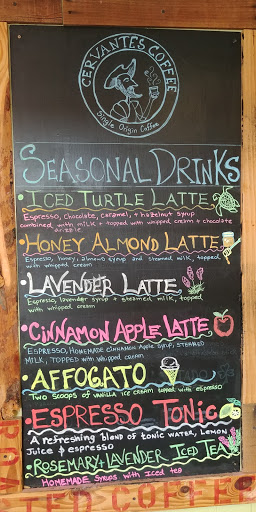 CERVANTES COFFEE
Single Origin Coffee
SEASONAL DRINKS
• ICED TURTLE LATTE
Espresso, chocolate, caramel, + hazelnut syrup
combined with milk + topped with whipped cream + chocolate
drizzle
• HONEY ALMOND LATTE
Espresso, honey, almond syrup and steamed milk, topped
with whipped cream
• LAVENDER LATTE
Espresso, lavender syrup + steamed milk, topped
with whipped cream
• CINNAMON APPLE LATTE
ESPRESSO, HOMEMADE CINNAMON Apple Syrup, STEAMED
MILK, TOPPED with whipped cream
• AFFOGATO
Two Scoops of vanilla ice cream topped with espresso
• ESPRESSO TONIC
A refreshing blend of tonic water, Lemon
Juice & espresso
• ROSEMARY + LAVENDER ICED TEA
HOMEMADE Syrups with Iced tea
COFFEE